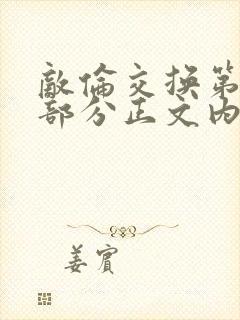 敵倫交換第
部分正文內
姜賓